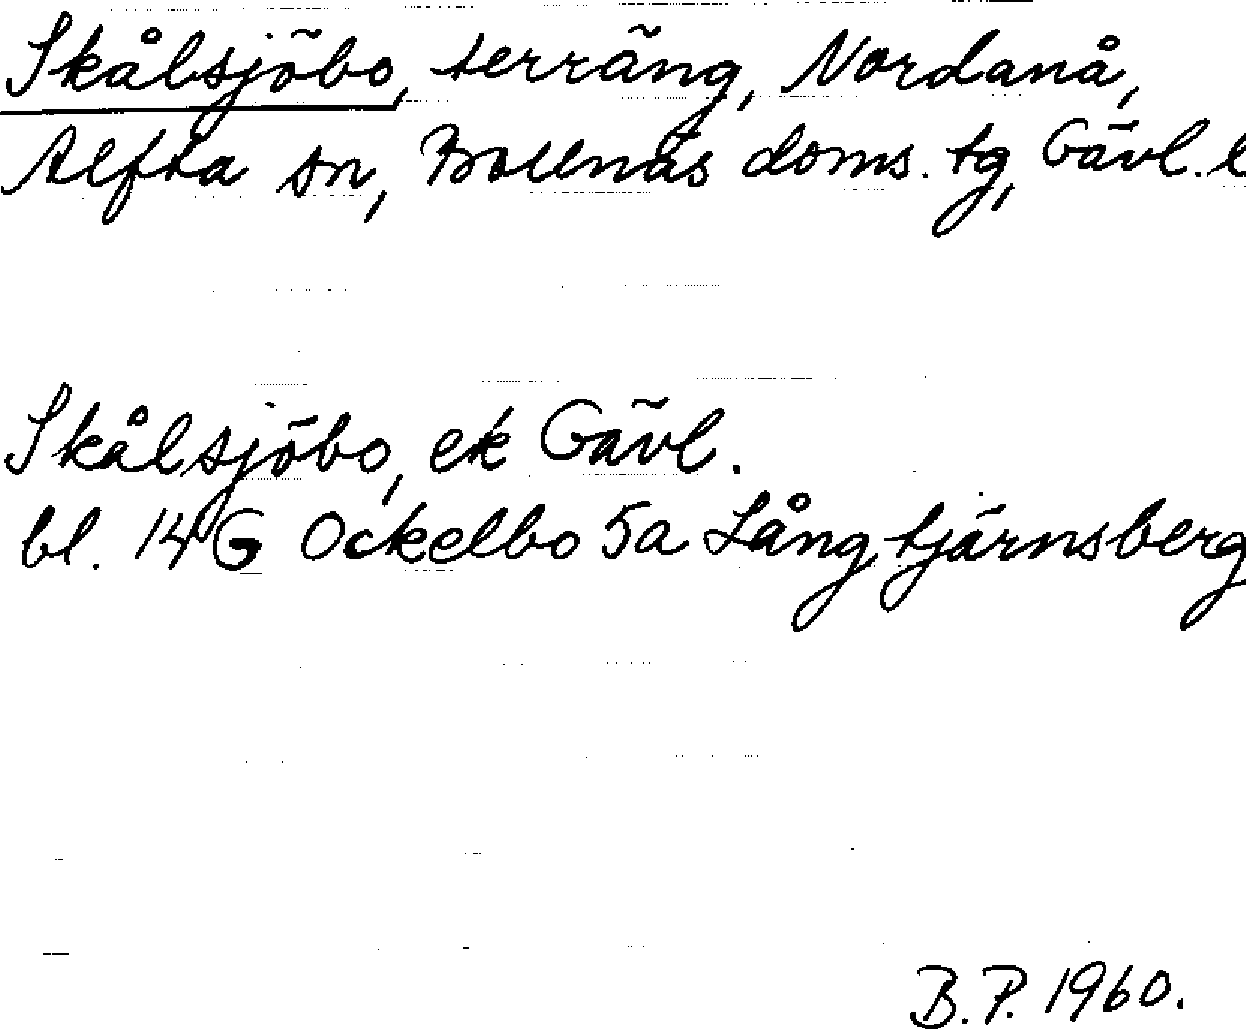 Skålsjöbo, terräng, Nordanå,
Alfta sn, Bollnäs doms. tg, Gävl. l
Skålsjöbo, ek Gävl.
bl. 14 G Ockelbo 5a Långtjärnsberg
B. P. 1960.